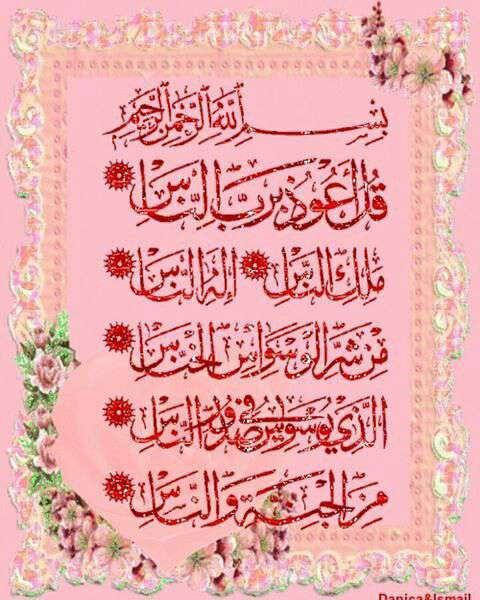 بِسْمِ اللَّهِ الرَّحْمَٰنِ الرَّحِيمِ
قُلْ أَعُوذُ بِرَبِّ النَّاسِ
مَلِكِ النَّاسِ إِلَٰهِ النَّاسِ
مِنْ شَرِّ الْوَسْوَاسِ الْخَنَّاسِ
الَّذِي يُوَسْوِسُ فِي صُدُورِ النَّاسِ
مِنَ الْجِنَّةِ وَالنَّاسِ
Danica&Ismail